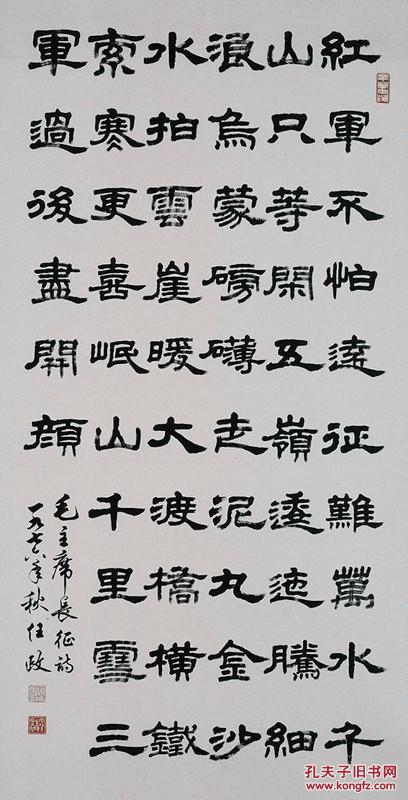 紅軍不怕遠征難萬水千
山只等閑五嶺逶迤騰細
浪烏蒙磅礴走泥丸金沙
水拍雲崖暖大渡橋橫鐵
索寒更喜岷山千里雪三
軍過後盡開顏
毛主席長征詩
一九七六年秋任政
孔夫子旧书网
www.kongfz.com